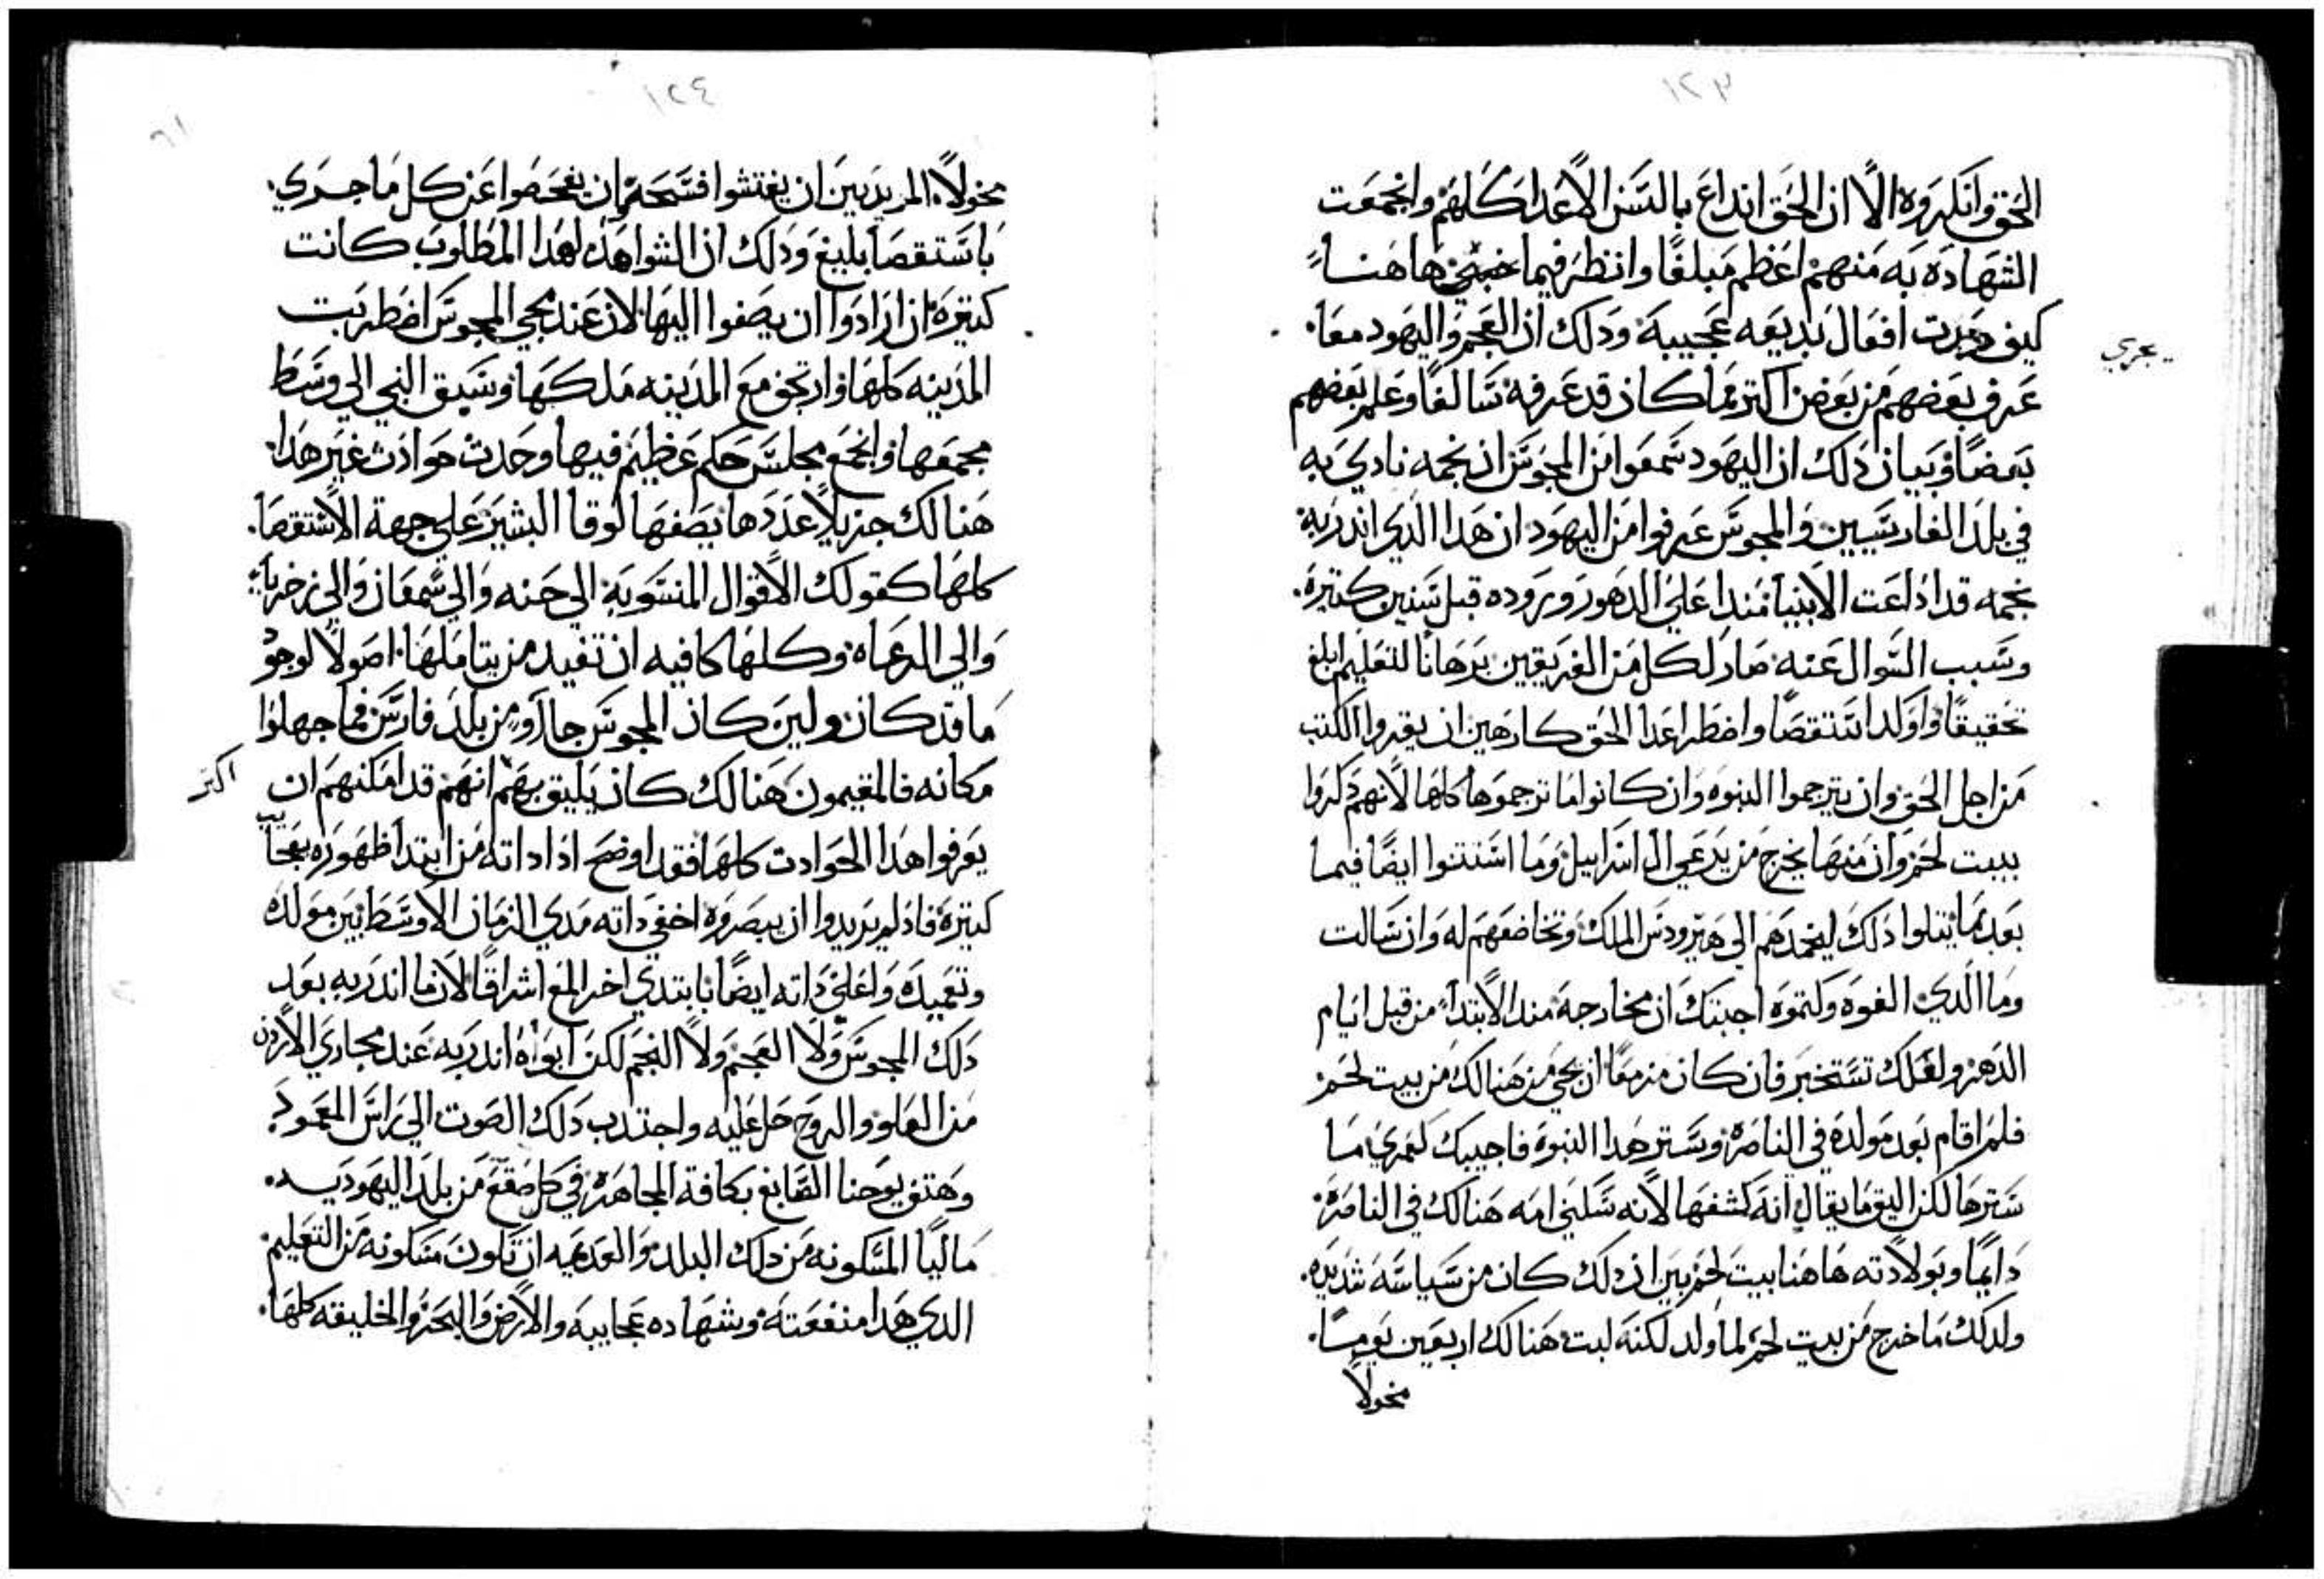 ١٢٣
الحق وانكروه الا ان الحق انداع بالسن الاعدا كلهم وانجمعت
الشهاده به منهم اعظم مبلغا وانظر فيما ها هنا
كيف دبرت افعال بديعه عجيبة وذلك ان العجم واليهود معا
يجري
عرف بعضهم من بعض اكتر مما كان قد عرفه سالفا وعلم بعضهم
بعضا وبيان ذلك ان اليهود سمعوا من المجوس ان نجمه نادي به
في بلد الفارسيين والمجوس عرفوا من اليهود ان هدا الدي اندر به
نجمه قد اداعت الانبيا مندا علي الدهور وروده قبل سنين كتيره
وسبب السوال عنه صار لكل من الفريقين برهانا للتعليم ابلغ
تحقيقا واوكد استقصا واضطر اعدا الحق كارهين ان يقروا الكتب
من اجل الحق وان يترجموا النبوه وان كانوا ما ترجموها كلها لانهم دكروا
ببيت لحم وان منها يخرج من يرعي ال اسراييل وما استتنوا ايضا فيما
بعد بما يتلوا دلك ليحمدهم الي هيرودس الملك وتخاضعهم له وان سالت
وما الدي الغوه وكتموه اجبتك ان مخارجه مند الابتدا من قبل ايام
الدهر ولعلك تستخبر فان كان مزمعا ان يجي من هنالك من بيت لحم
فلم اقام بعد مولده في الناصره وستر هدا النبوه فاجيبك لعمري ما
سترها لكن اليق ما يقال انه كشفها لانه سكني امه هنالك في الناصره
دايما وبولادته ها هنا بيت لحم بين ان دلك كان من سياسه شديده
ولدلك ما خرج من بيت لحم لما ولد لكنه لبت هنالك اربعين يوما
مخولا
١٢٤
٦١
مخولا المريدين ان يفتشوا فسحة ان يفحصوا عن كل ما جري
باستقصا بليغ ودلك ان الشواهد لهدا المطلوب كانت
كتيره ان ارادوا ان يصغوا اليها لان عند مجي المجوس اضطربت
المدينه كلها وارتجف مع المدينه ملكها وسيق النبي الي وسط
مجمعها وانجمع مجلس حكم عظيم فيها وحدت حوادت غير هدا
هنالك جزيلا عددها يصفها لوقا البشير علي جهة الاستقصا
كلها كقولك الاقوال المنسوبة الي حنه والي سمعان والي زخريا
والي الرعاه وكلها كافيه ان تفيد من يتاملها اصولا لوجود
ما قد كان ولين كان المجوس جاآو من بلد فارس فما جهلوا
مكانه فالمقيمون هنالك كان يليق بهم انهم قد امكنهم ان
اكتر
يعرفوا هدا الحوادت كلها فقد اوضح ادا داته من ابتدا ظهوره بعجايب
كتيره فاد لم يريدوا ان يبصروه اخفي داته مدي الزمان الاوسط بين مولده
وتعميده واعلن داته ايضا بابتدي اخر المع اشراقا لان ما اندر به بعد
دلك المجوس ولا العجم ولا النجم لكن ابواه اندر به عند مجاري الاردن
من العلو والروح حل عليه واجتدب دلك الصوت الي راس المعمود
وهتف يوحنا الصابغ بكافة المجاهره في كل صقع من بلد اليهوديه
ماليا المسكونه من دلك البلد والعديمه ان تكون مسكونه من التعليم
الدي هدا منفعته وشهاده عجاييبه والارض والبحر والخليقه كلها